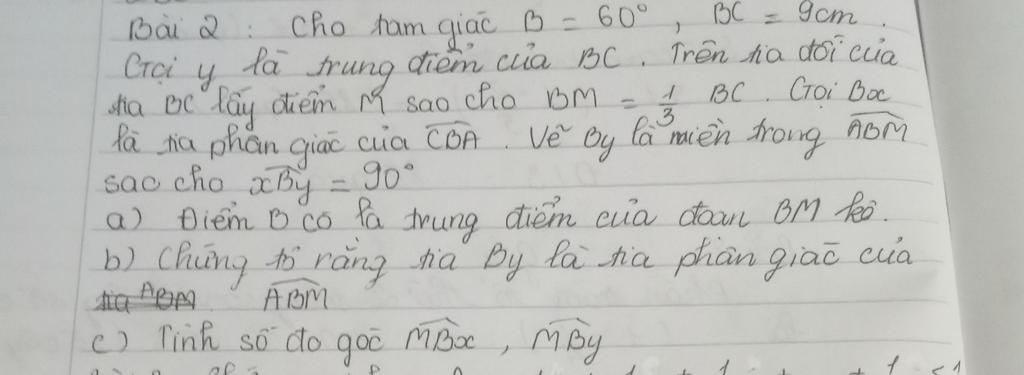 Bài 2 : Cho tam giác B = 60° , BC = 9cm .
Gọi y là trung điểm của BC . Trên tia đối của
tia BC lấy điểm M sao cho BM = 1/3 BC . Gọi Bx
là tia phân giác của CBA . Vẽ By là miền trong ABM
sao cho xBy = 90°
a) Điểm B có là trung điểm của đoan BM kô.
b) Chứng tỏ rằng tia By là tia phân giác của
tia ABM ABM
c) Tính số đo góc MBx , MBy